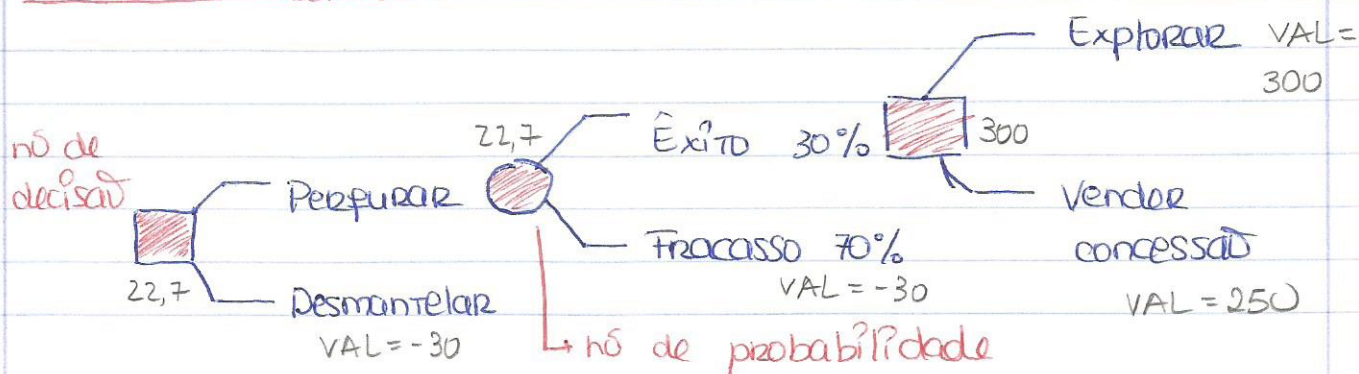 Explorar VAL=
300
nó de
decisão
Perfurar
22,7
Êxito 30%
300
Vender
concessão
VAL = 250
Fracasso 70%
VAL = -30
22,7
Desmantelar
VAL = -30
↳ nó de probabilidade